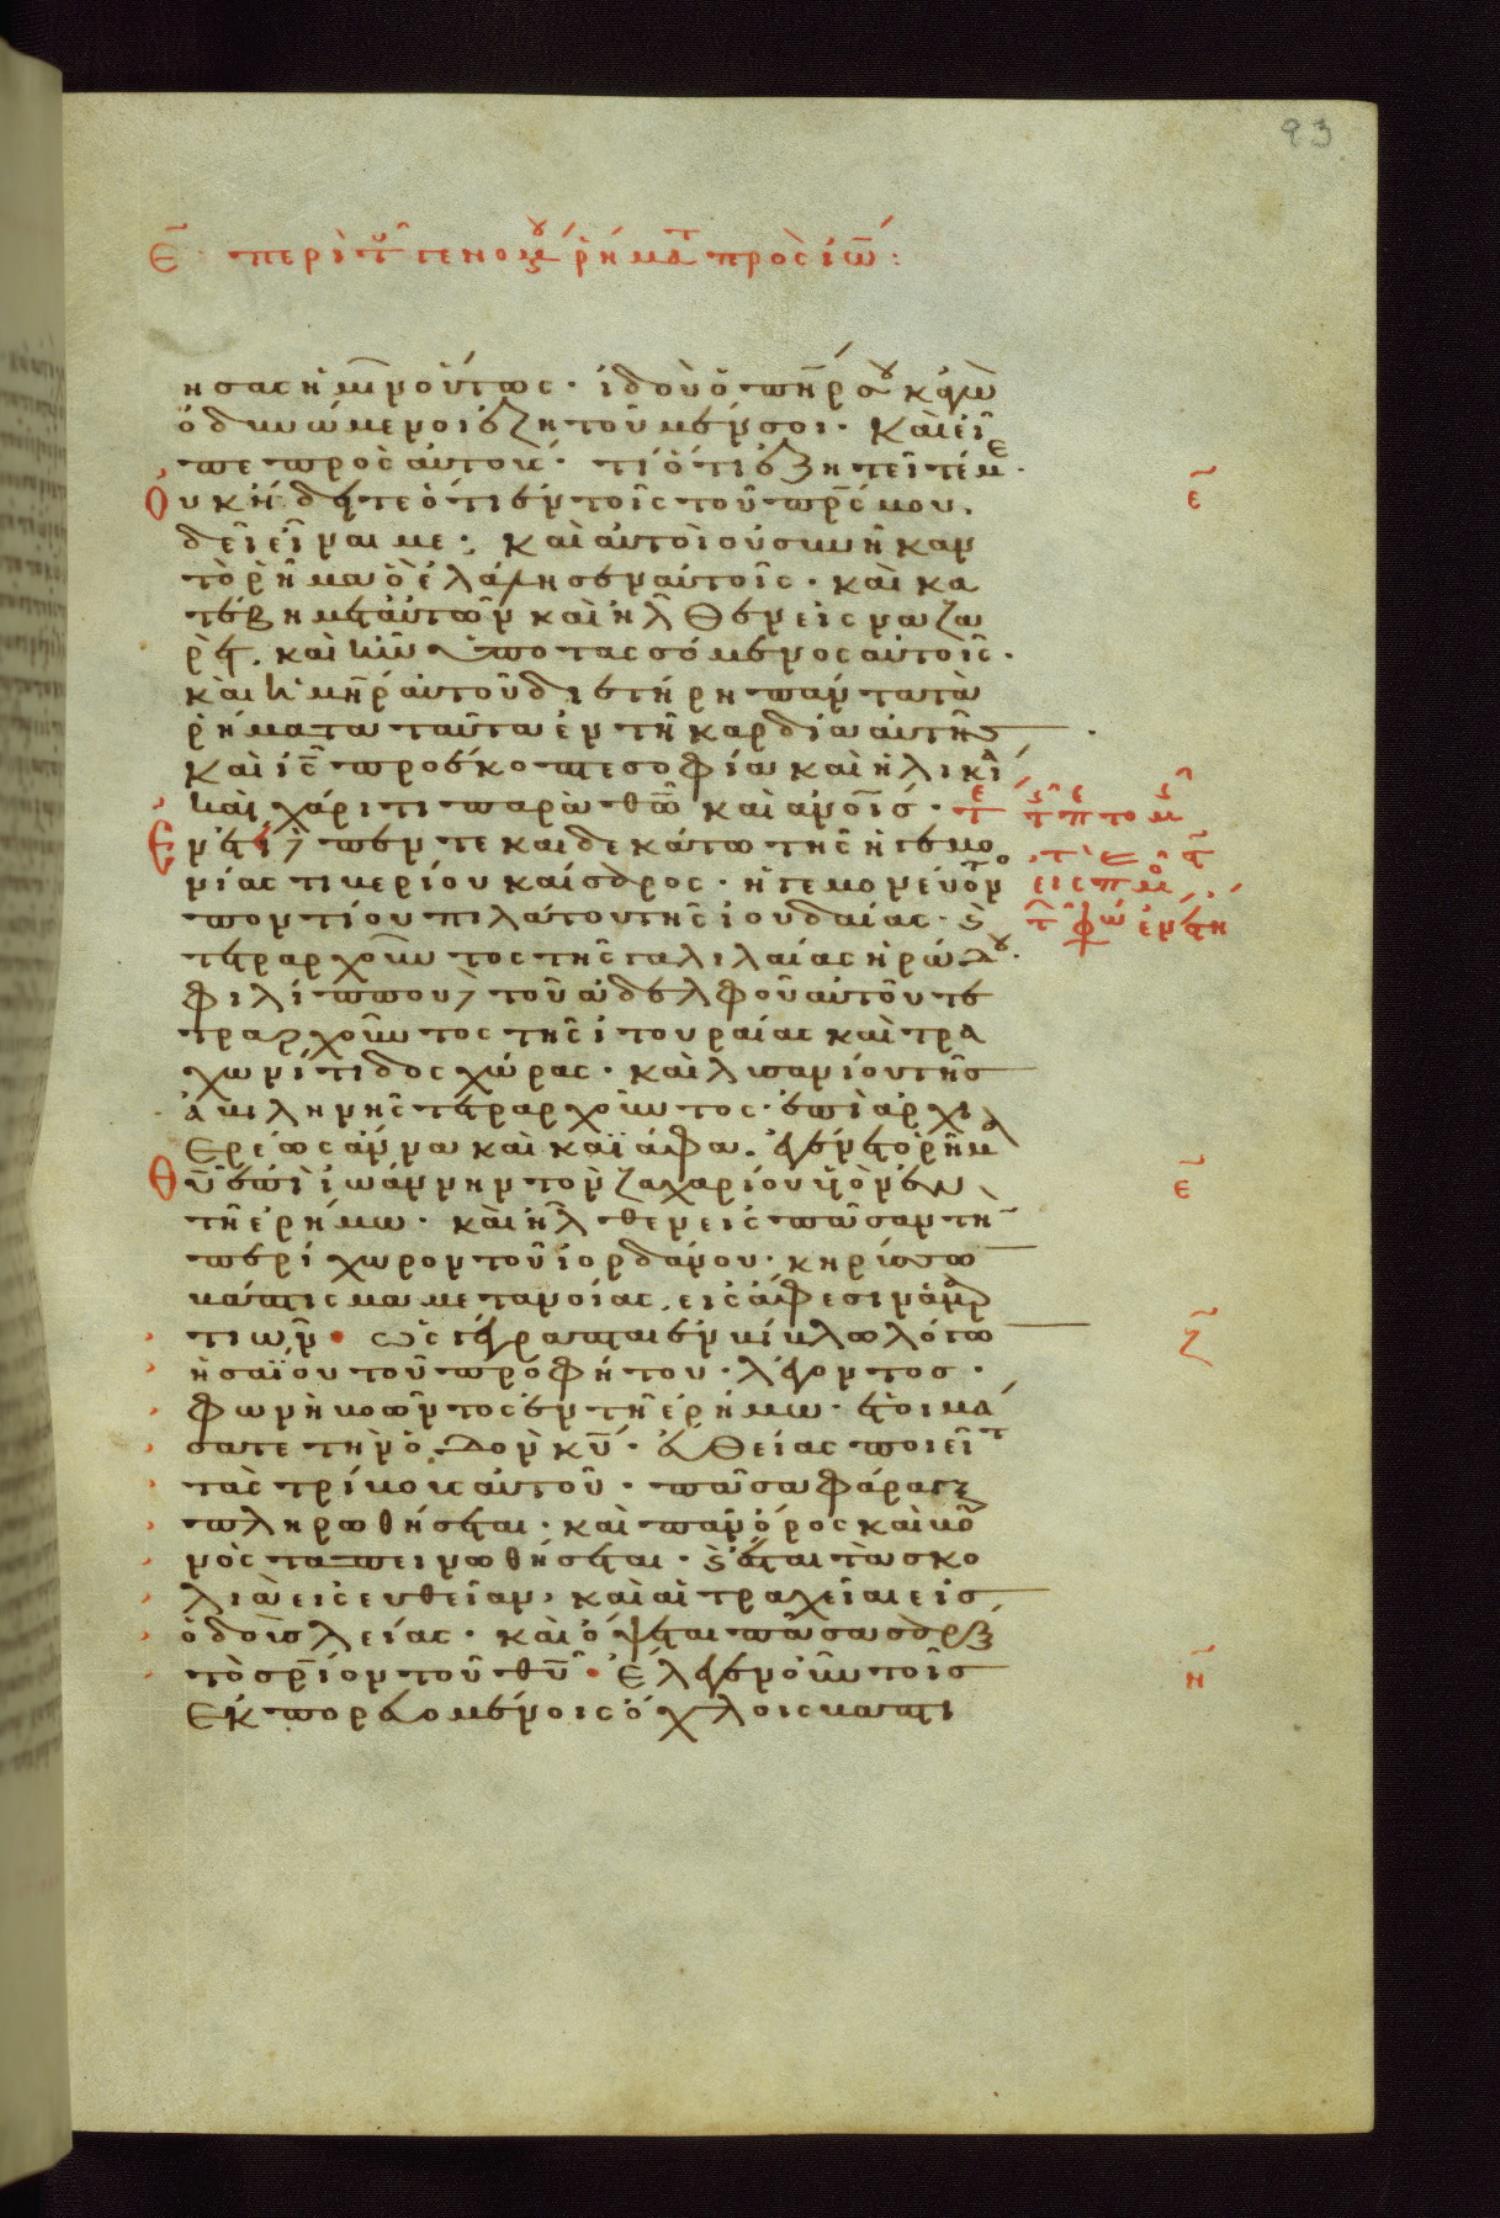 93
ε̄ περὶ τοῦ γενομένου ῥήματος πρὸς ἰω̄:
ησας ἡμῖν οὕτως· ἰδοὺ ὁ πη̄ρ σου κἀγὼ
ὀδυνώμενοι ἐζητοῦμέν σοι· καὶ εἶ
πε πρὸς αὐτούς· τί ὅτι ἐζητεῖτέ με·
Οὐκ ἤδητε ὅτι ἐν τοῖς τοῦ πρ̄ς μου
δεῖ εἶναι με· καὶ αὐτοὶ οὐ συνῆκαν
τὸ ῥῆμα ὃ ἐλάλησεν αὐτοῖς· καὶ κα
τέβη μετ' αὐτῶν καὶ ἦλθεν εἰς ναζα
ρέτ. καὶ ἦν ὑποτασσόμενος αὐτοῖς·
καὶ ἡ μη̄ρ αὐτοῦ διετήρη πάντα τὰ
ῥήματα ταῦτα ἐν τῆ καρδία αὐτῆς
καὶ ις̄ προέκοπτε σοφία καὶ ἡλικί
καὶ χάριτι παρὰ θω̄ καὶ ἀνοις̄·
Ἐν ἔτει πεντεκαιδεκάτω τῆς ἡγεμο
νίας τιβερίου καίσαρος· ἡγεμονεύοντο
ποντίου πιλάτου τῆς ἰουδαίας· ϛ̀
τετραρχοῦντος τῆς γαλιλαίας ἡρώδου·
φιλίππου τοῦ ἀδελφοῦ αὐτοῦ τε
τραρχοῦντος τῆς ἰτουραίας καὶ τρα
χωνίτιδος χώρας· καὶ λυσανίου τῆς
ἀβιληνῆς τετραρχοῦντος· ἐπὶ ἀρχι
ερέως ἄννα καὶ καϊάφα. ἐγένετο ῥῆμα
θῡ ἐπὶ ἰωάννην τὸν ζαχαρίου υἱὸν ἐν
τῆ ἐρήμω· καὶ ἦλθεν εἰς πᾶσαν τὴν
περίχωρον τοῦ ἰορδάνου· κηρύσσω
βάπτισμα μετανοίας, εἰς ἄφεσιν ἁμαρ
τιῶν· ὡς γέγραπται ἐν βίβλω λόγω
ἡσαΐου τοῦ προφήτου· λέγοντος·
φωνὴ βοῶντος ἐν τῆ ἐρήμω· ἑτοιμά
σατε τὴν ὁδὸν κῡ· εὐθείας ποιεῖτ
τὰς τρίβους αὐτοῦ· πᾶσα φάραγξ
πληρωθήσεται· καὶ πᾶν ὄρος καὶ βου
νὸς ταπεινωθήσεται· ϛ̀ ἔσται τὰ σκο
λιὰ εἰς ευθεῖαν, καὶ αἱ τραχεῖαι εἰς
ὁδοὺς λείας· καὶ ὄψεται πᾶσα σὰρξ
τὸ σρ̄ιον τοῦ θῡ· Ἔλεγεν οὖν τοῖς
Ἐκπορευομένοις ὄχλοις βαπτι
ε̄
ε̄
ζ̄
η̄